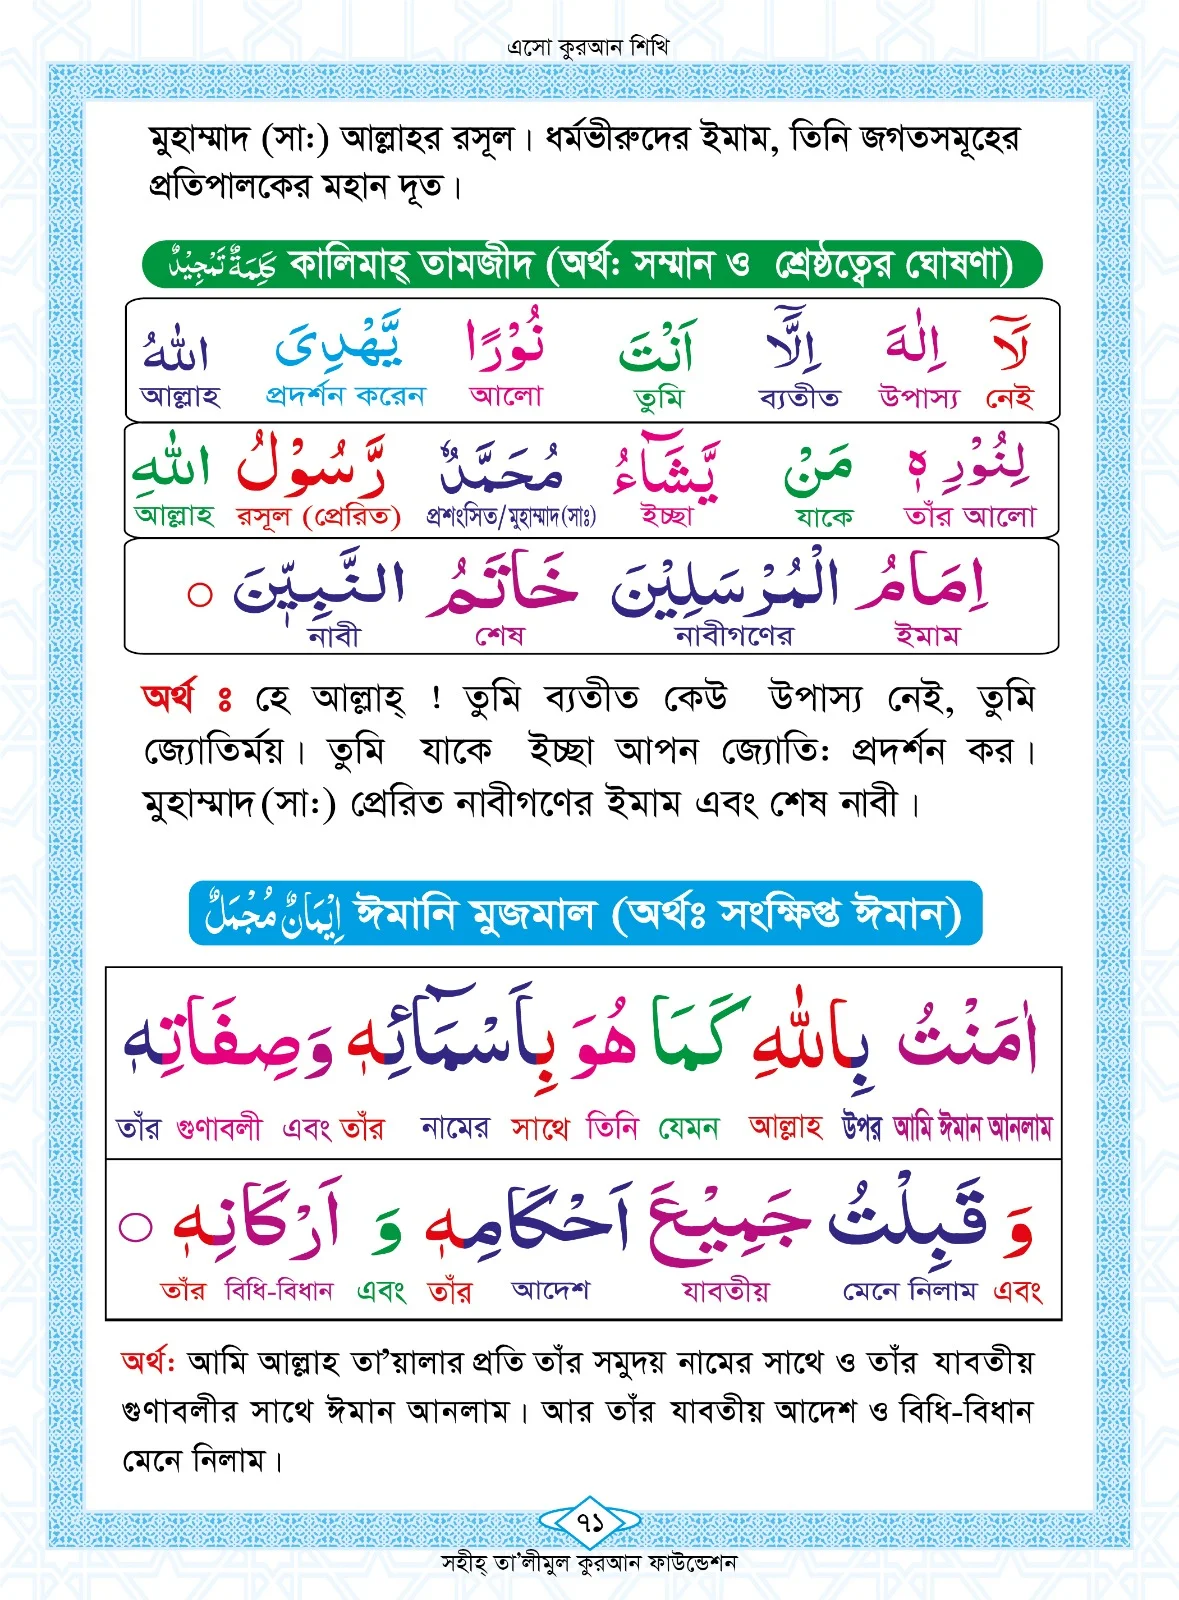 এসো কুরআন শিখি
মুহাম্মাদ (সা:) আল্লাহর রসূল। ধর্মভীরুদের ইমাম, তিনি জগতসমূহের
প্রতিপালকের মহান দূত।
كَلِمَةٌ تَمْجِيْدٌ কালিমাহ্ তামজীদ (অর্থ: সম্মান ও শ্রেষ্ঠত্বের ঘোষণা)
لَآ اِلٰهَ اِلَّآ اَنْتَ نُوْرًا يَّهْدِىَ اللّٰهُ
নেই উপাস্য ব্যতীত তুমি আলো প্রদর্শন করেন আল্লাহ
لِنُوْرِهٖ مَنْ يَّشَآءُ مُحَمَّدٌ رَّسُوْلُ اللّٰهِ
তাঁর আলো যাকে ইচ্ছা প্রশংসিত/মুহাম্মাদ(সাঃ) রসূল (প্রেরিত) আল্লাহ
اِمَامُ الْمُرْسَلِيْنَ خَاتَمُ النَّبِيّٖنَ ○
ইমাম নাবীগণের শেষ নাবী
অর্থ ঃ হে আল্লাহ্ ! তুমি ব্যতীত কেউ উপাস্য নেই, তুমি
জ্যোতির্ময়। তুমি যাকে ইচ্ছা আপন জ্যোতি: প্রদর্শন কর।
মুহাম্মাদ(সা:) প্রেরিত নাবীগণের ইমাম এবং শেষ নাবী।
اِيْمَانٌ مُجْمَلٌ ঈমানি মুজমাল (অর্থঃ সংক্ষিপ্ত ঈমান)
اٰمَنْتُ بِاللّٰهِ كَمَا هُوَ بِاَسْمَآئِهٖ وَصِفَاتِهٖ
আমি ঈমান আনলাম উপর আল্লাহ যেমন তিনি সাথে নামের তাঁর এবং গুণাবলী তাঁর
وَ قَبِلْتُ جَمِيْعَ اَحْكَامِهٖ وَ اَرْكَانِهٖ ○
এবং মেনে নিলাম যাবতীয় আদেশ তাঁর এবং বিধি-বিধান তাঁর
অর্থ: আমি আল্লাহ তা’য়ালার প্রতি তাঁর সমুদয় নামের সাথে ও তাঁর যাবতীয়
গুণাবলীর সাথে ঈমান আনলাম। আর তাঁর যাবতীয় আদেশ ও বিধি-বিধান
মেনে নিলাম।
৭১
সহীহ্ তা’লীমুল কুরআন ফাউন্ডেশন